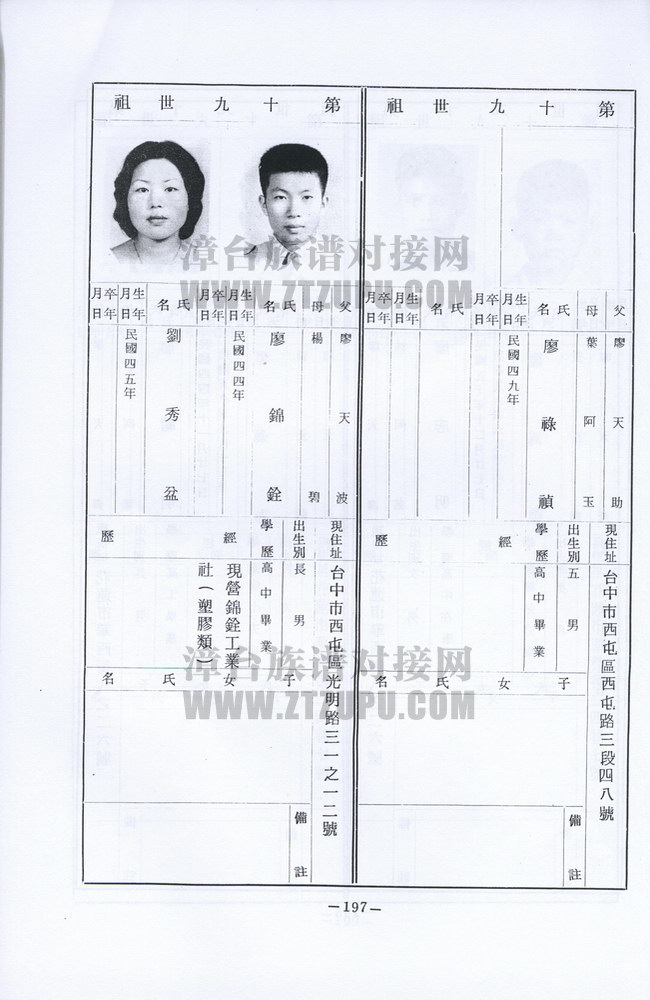 第十九世祖
父 廖天助
母 葉阿玉
氏名 廖祿禎
生年月日 民國四九年
卒年月日
氏名
生年月日
卒年月日
現住址 台中市西屯區西屯路三段四八號
出生別 五男
學歷 高中畢業
經歷
子女氏名
備註
第十九世祖
父 廖天波
母 楊碧
氏名 廖錦銓
生年月日 民國四四年
卒年月日
氏名 劉秀盆
生年月日 民國四五年
卒年月日
現住址 台中市西屯區光明路三一之一二號
出生別 長男
學歷 高中畢業
經歷 現營錦銓工業
社（塑膠類）
子女氏名
備註
—197—
漳台族谱对接网
WWW.ZTZUPU.COM
漳台族谱对接网
WWW.ZTZUPU.COM